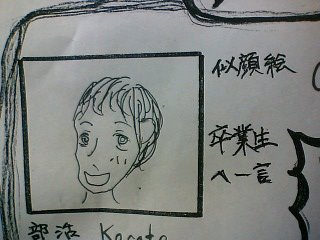 似顔絵
卒業生
へ一言
部活 Karate